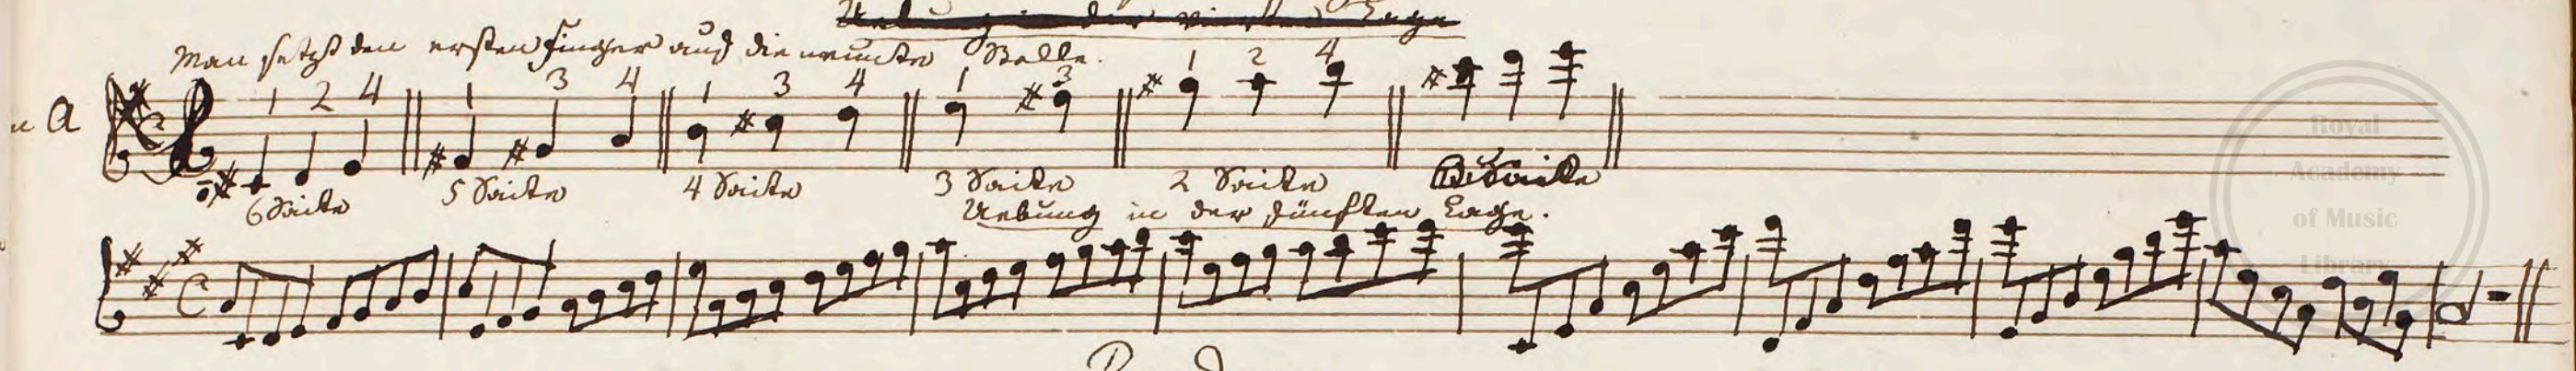 Uebung in der vierten Lage
Man setzt den ersten Finger auf die neunte Stelle.
A
1 2 4 1 3 4 1 3 4 1 3 1 2 4
6 Saite 5 Saite 4 Saite 3 Saite 2 Saite Saite
Uebung in der fünften Lage.
C
Royal
Academy
of Music
Library